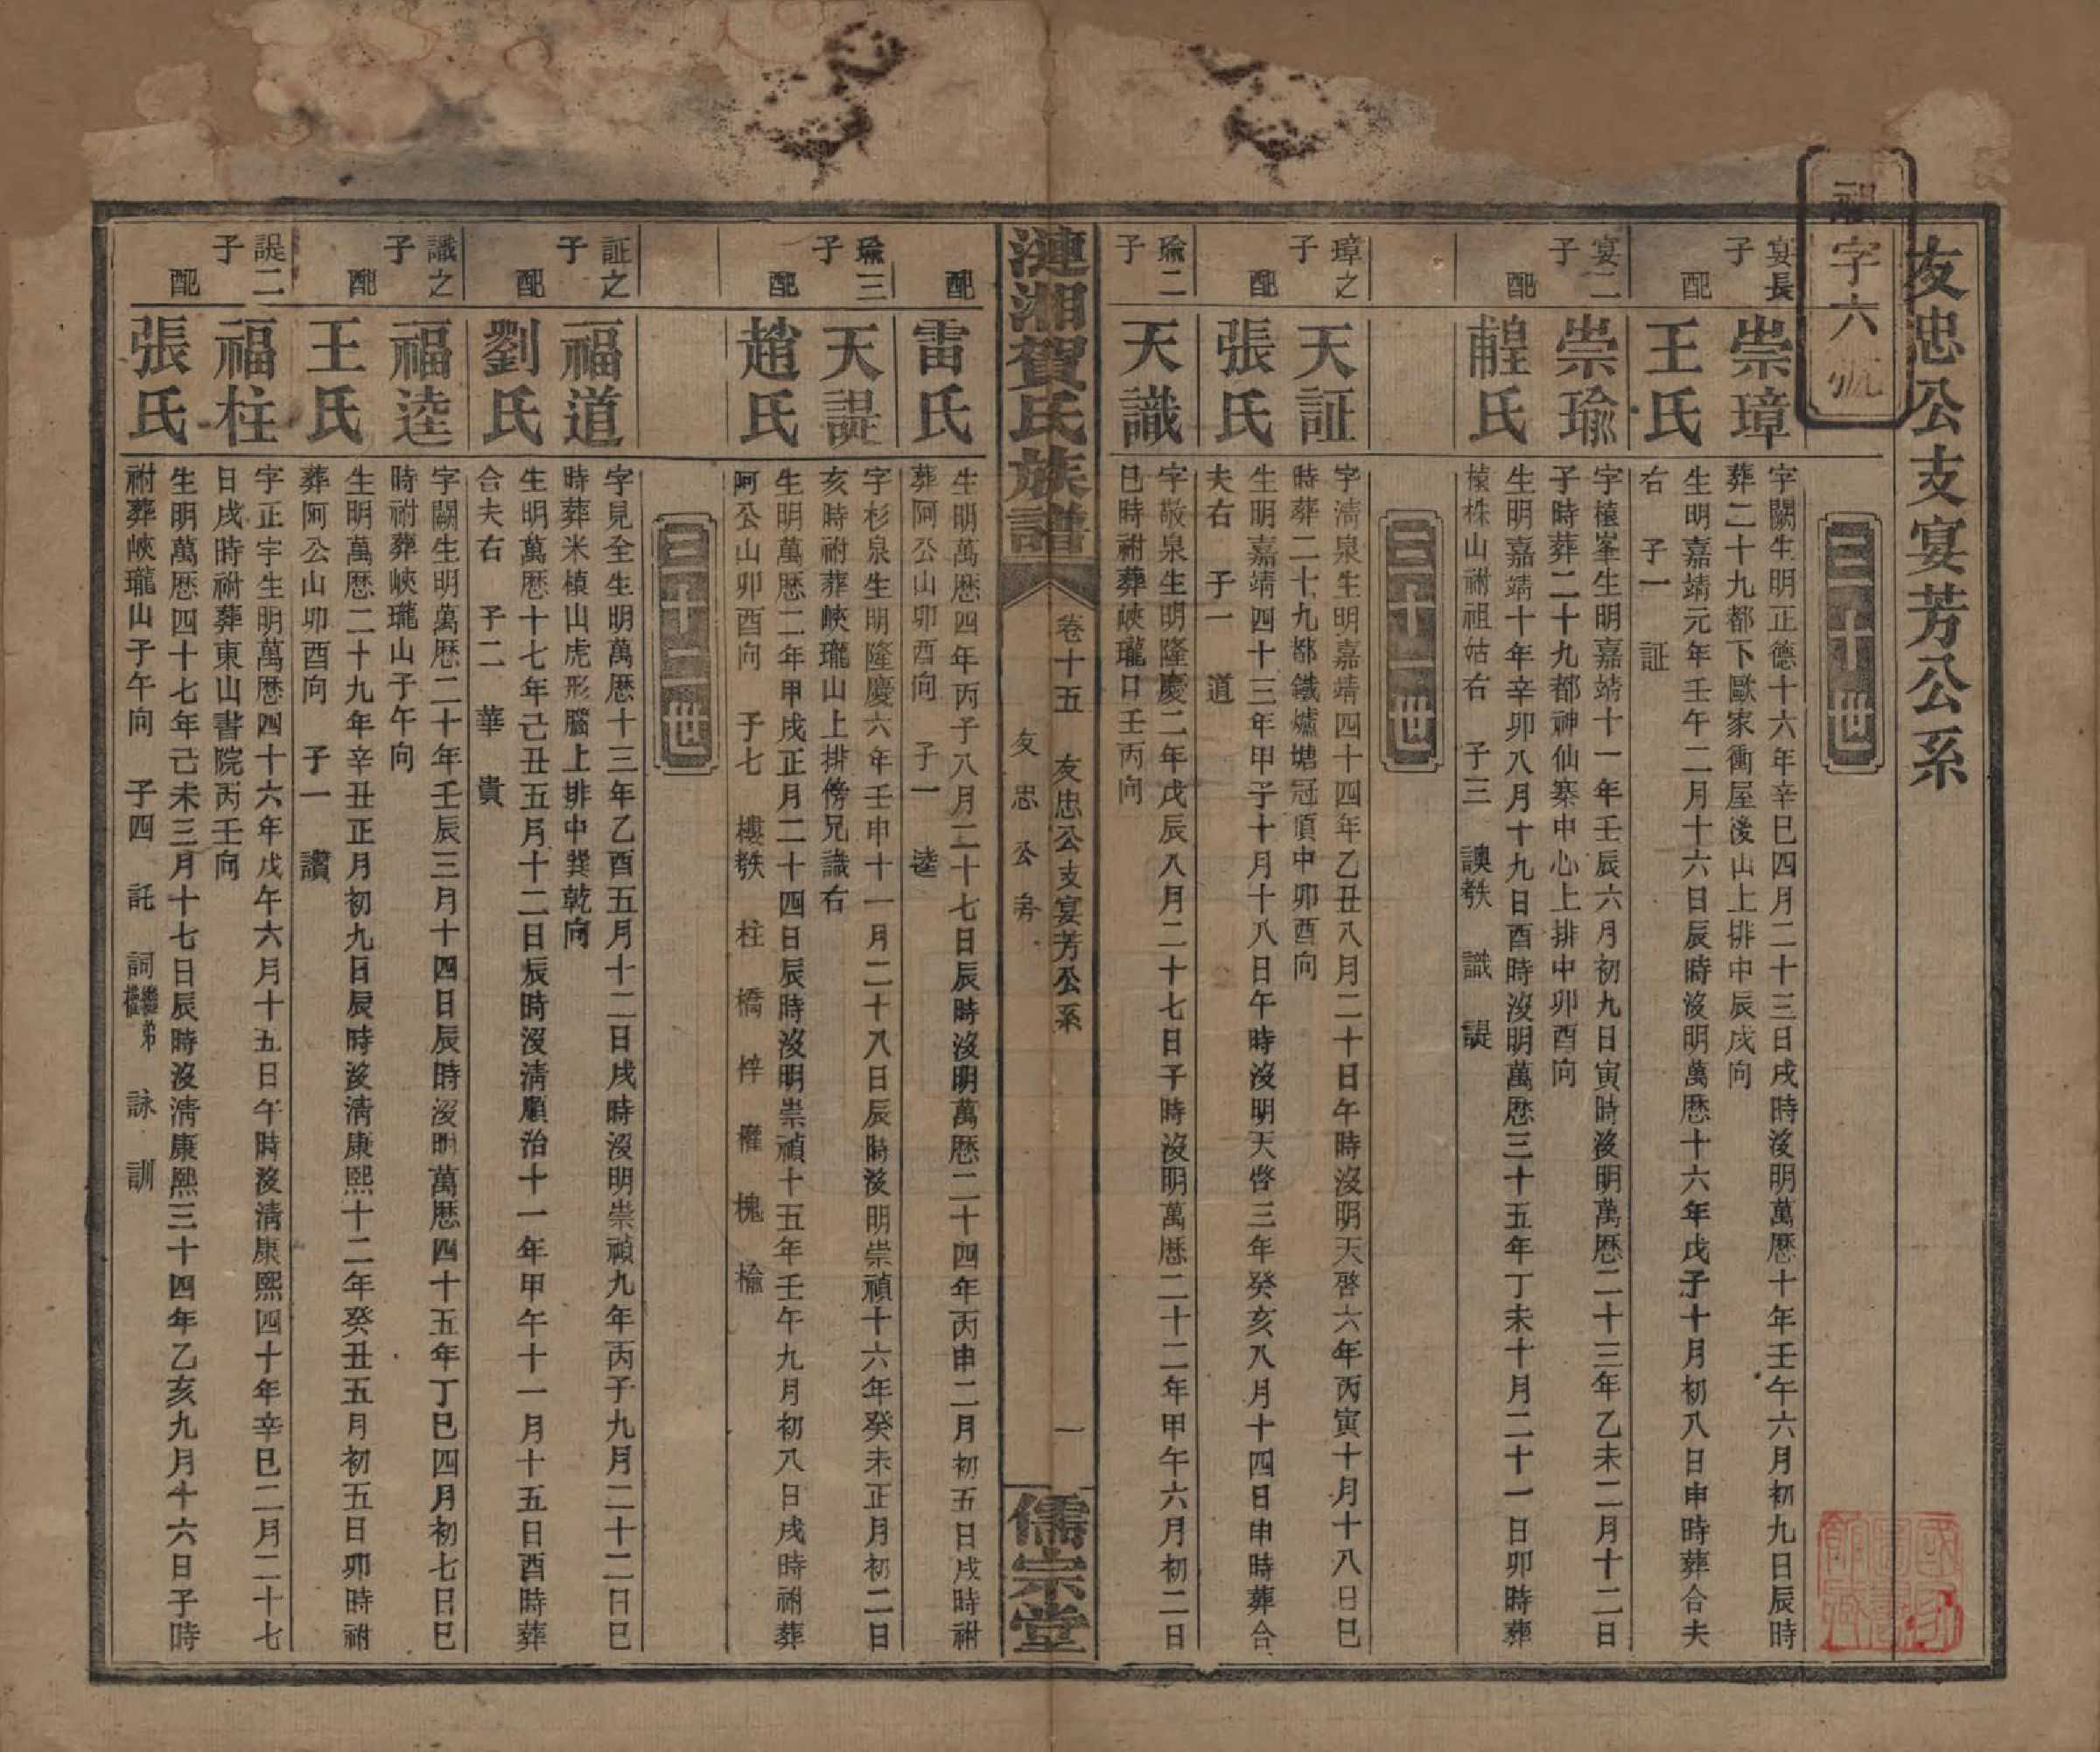 友忠公支宴芳公系
祖字六號
三十世
宴長子 崇璋
字關生明正德十六年辛巳四月二十三日戌時沒明萬厯十年壬午六月初九日辰時
葬二十九都下歐家衝屋後山上排中辰戌向
配 王氏
生明嘉靖元年壬午二月十六日辰時沒明萬厯十六年戊子十月初八日申時葬合夫
右 子一 証
宴二子 崇瑜
字植峯生明嘉靖十一年壬辰六月初九日寅時沒明萬厯二十三年乙未二月十二日
子時葬二十九都神仙寨中心上排中卯酉向
配 氏
生明嘉靖十年辛卯八月十九日酉時沒明萬厯三十五年丁未十月二十一日卯時葬
植株山祔祖姑右 子三 諛 識 諟
三十一世
璋之子 天証
字淸泉生明嘉靖四十四年乙丑八月二十日午時沒明天啓六年丙寅十月十八日巳
時葬二十九都鐵爐塘冠頂中卯酉向
配 張氏
生明嘉靖四十三年甲子十月十八日午時沒明天啓三年癸亥八月十四日申時葬合
夫右 子一 道
瑜二子 天識
字敬泉生明隆慶二年戊辰八月二十七日子時沒明萬厯二十二年甲午六月初二日
巳時祔葬峽瓏口壬丙向
漣湘賀氏族譜
卷十五 友忠公支宴芳公系 一
友忠公房
儒宗堂
配 雷氏
生明萬厯四年丙子八月二十七日辰時沒明萬厯二十四年丙申二月初五日戌時祔
葬阿公山卯酉向 子一 逵
瑜三子 天諟
字杉泉生明隆慶六年壬申十一月二十八日辰時沒明崇禎十六年癸未正月初二日
亥時祔葬峽瓏山上排傍兄識右
配 趙氏
生明萬厯二年甲戌正月二十四日辰時沒明崇禎十五年壬午九月初八日戌時祔葬
阿公山卯酉向 子七 樓 柱 橋 梓 權 槐 楡
三十二世
証之子 福道
字見全生明萬厯十三年乙酉五月十二日戌時沒明崇禎九年丙子九月二十二日巳
時葬米植山虎形腦上排中巽乾向
配 劉氏
生明萬厯十七年己丑五月十二日辰時沒淸順治十一年甲午十一月十五日酉時葬
合夫右 子二 華 貴
識之子 福逵
字關生明萬厯二十年壬辰三月十四日辰時沒明萬厯四十五年丁巳四月初七日巳
時祔葬峽瓏山子午向
配 王氏
生明萬厯二十九年辛丑正月初九日辰時沒淸康熙十二年癸丑五月初五日卯時祔
葬阿公山卯酉向 子一 讚
諟二子 福柱
字正宇生明萬厯四十六年戊午六月十五日午時沒淸康熙四十年辛巳二月二十七
日戌時祔葬東山書院丙壬向
配 張氏
生明萬厯四十七年己未三月十七日辰時沒淸康熙三十四年乙亥九月十六日子時
祔葬峽瓏山子午向 子四 託 詞 繼弟權 詠 訓